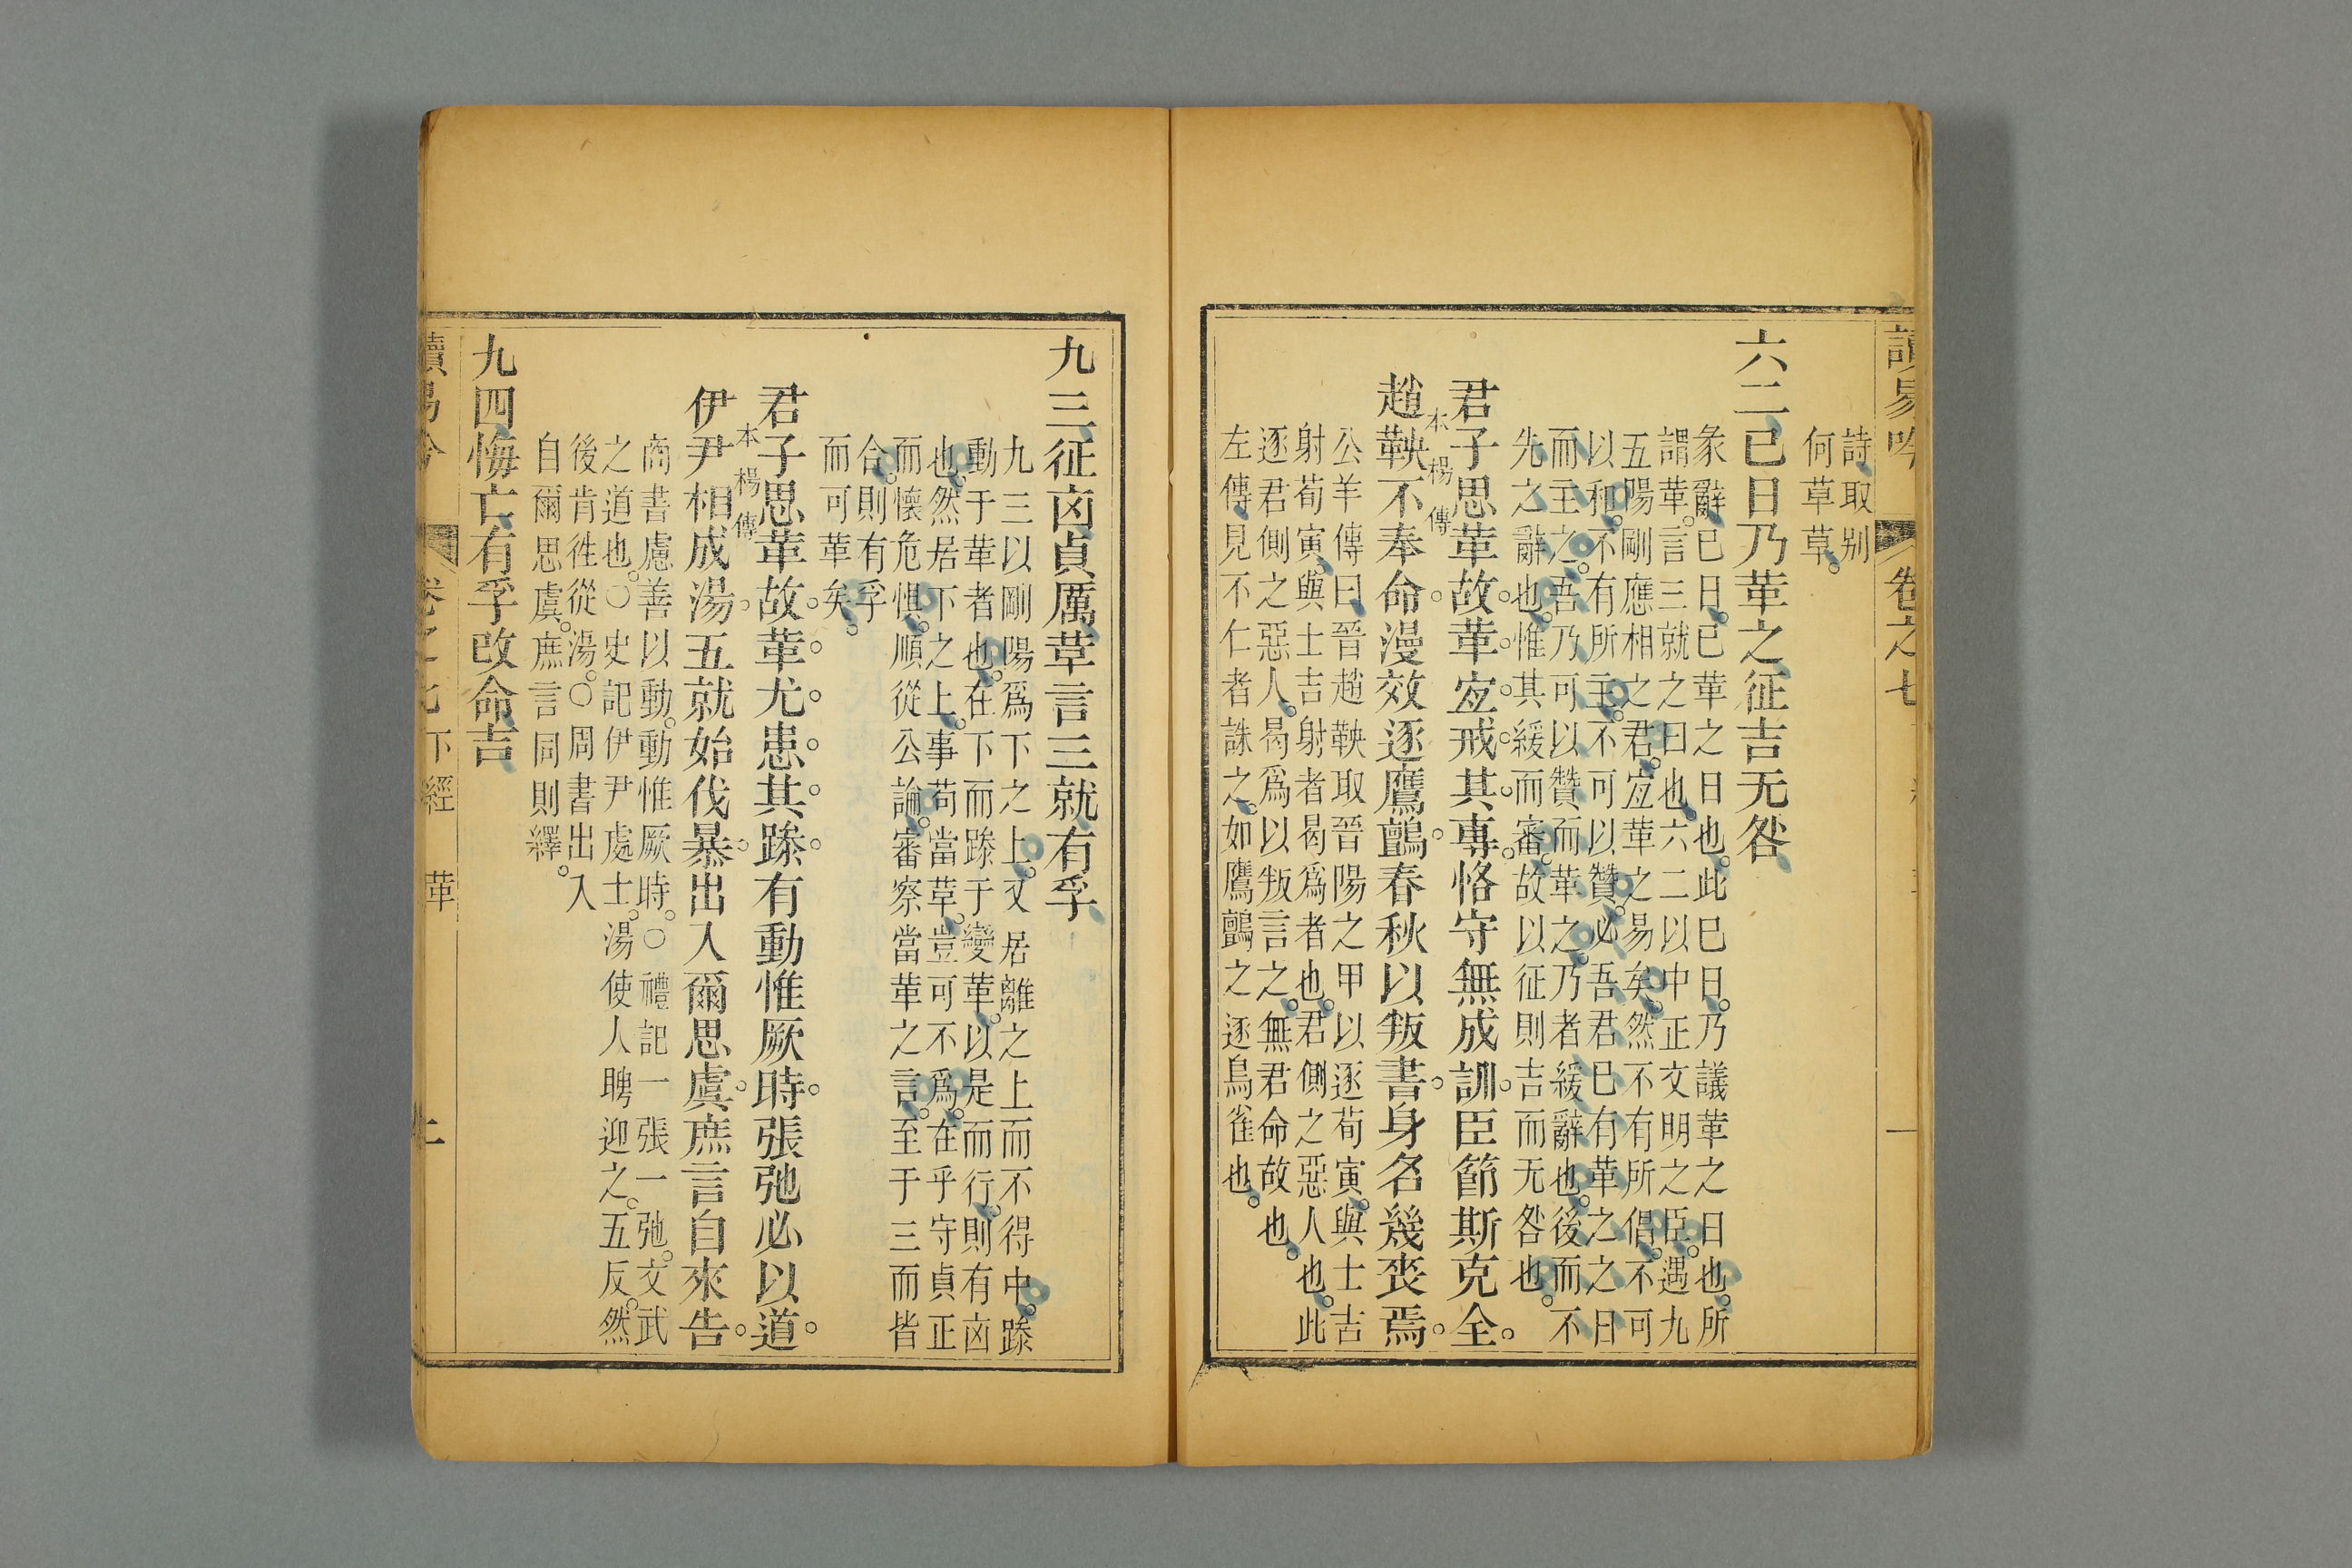 讀易吟 卷之七
一
詩取别
何草草
六二巳日乃革之征吉无咎
彖辭巳日巳革之日也此巳日乃議革之日也所
謂革言三就之日也六二以中正文明之臣遇九
五陽剛應相之君宐革之易矣然不有所倡不可
以和不有所主不可以贊必吾君巳有革之之日
而主之吾乃可以贊而革之乃者緩辭也後而不
先之辭也惟其緩而審故以征則吉而无咎也
君子思革故革宐戒其專恪守無成訓臣節斯克全
本楊傳
趙鞅不奉命漫效逐鷹鸇春秋以叛書身名幾喪焉
公羊傳曰晉趙鞅取晉陽之甲以逐荀寅與士吉
射荀寅與士吉射者曷爲者也君側之惡人也此
逐君側之惡人曷爲以叛言之無君命故也
左傳見不仁者誅之如鷹鸇之逐鳥雀也
九三征凶貞厲革言三就有孚
九三以剛陽爲下之上又居離之上而不得中躁
動于革者也在下而躁于變革以是而行則有凶
也然居下之上事苟當革豈可不爲在乎守貞正
而懷危惧順從公論審察當革之言至于三而皆
合則有孚
而可革矣
君子思革故革尤患其躁有動惟厥時張弛必以道
本楊傳
伊尹相成湯五就始伐暴出入爾思虞庶言自來告
商書慮善以動動惟厥時○禮記一張一弛文武
之道也○史記伊尹處士湯使人聘迎之五反然
後肯徃從湯○周書出入
自爾思虞庶言同則繹
九四悔亡有孚改命吉
讀易吟 卷之七 下經 革